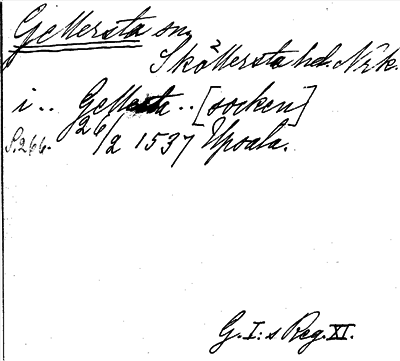 Gellersta sn,
Sköllersta hd. Nrk.
i .. Gellesta .. [socken]
S. 266. 26/2 1537 Upsala.
G. I:s Reg. XI.